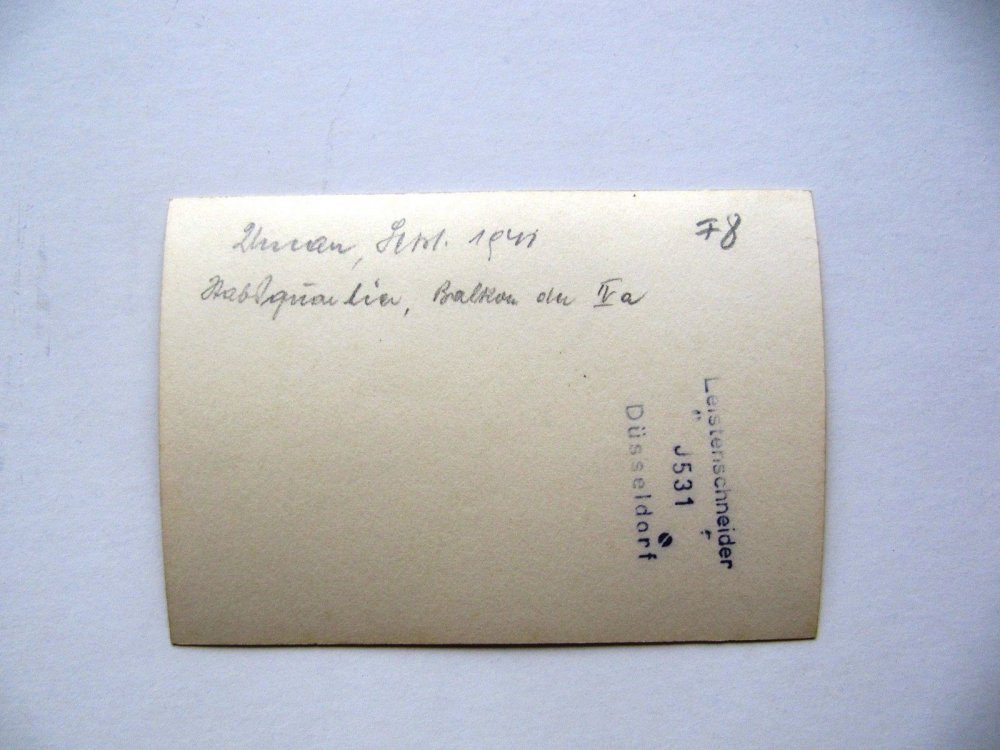 Uman, Sept. 1941
78
Stabsquartier, Balkon der IVa
Leistenschneider
J531
Düsseldorf